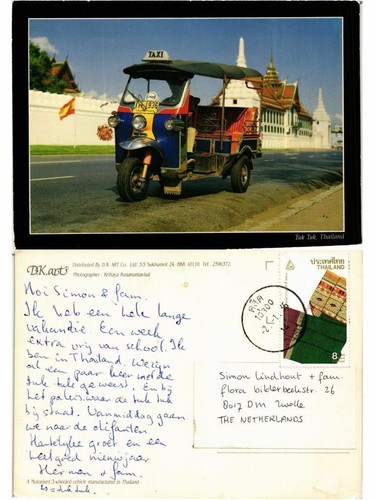 TAXI
Tuk Tuk, Thailand
D.K. art's
Distributed By D.K. ART Co., Ltd. 3/5 Sukhumvit 24, BKK 10110 Tel : 2586372
Photographer :
Hoi Simon & fam.
Ik heb een hele lange
vakantie. Een week
extra vrij van school. Ik
ben in Thailand. We zijn
al een paar keer met de
tuk tuk geweest. En bij
het paleis waar de tuk tuk
bij staat. Vanmiddag gaan
we naar de olifanten
Hartelijke groet en een
heel goed nieuwjaar
Herman + fam.
= tuk tuk.
A Motorised 3-wheeled vehicle manufactured in Thailand.
ประเทศไทย
THAILAND
8
10200
Simon Lindhout + fam.
flora bilderbeekstr. 26
8017 DM Zwolle
THE NETHERLANDS